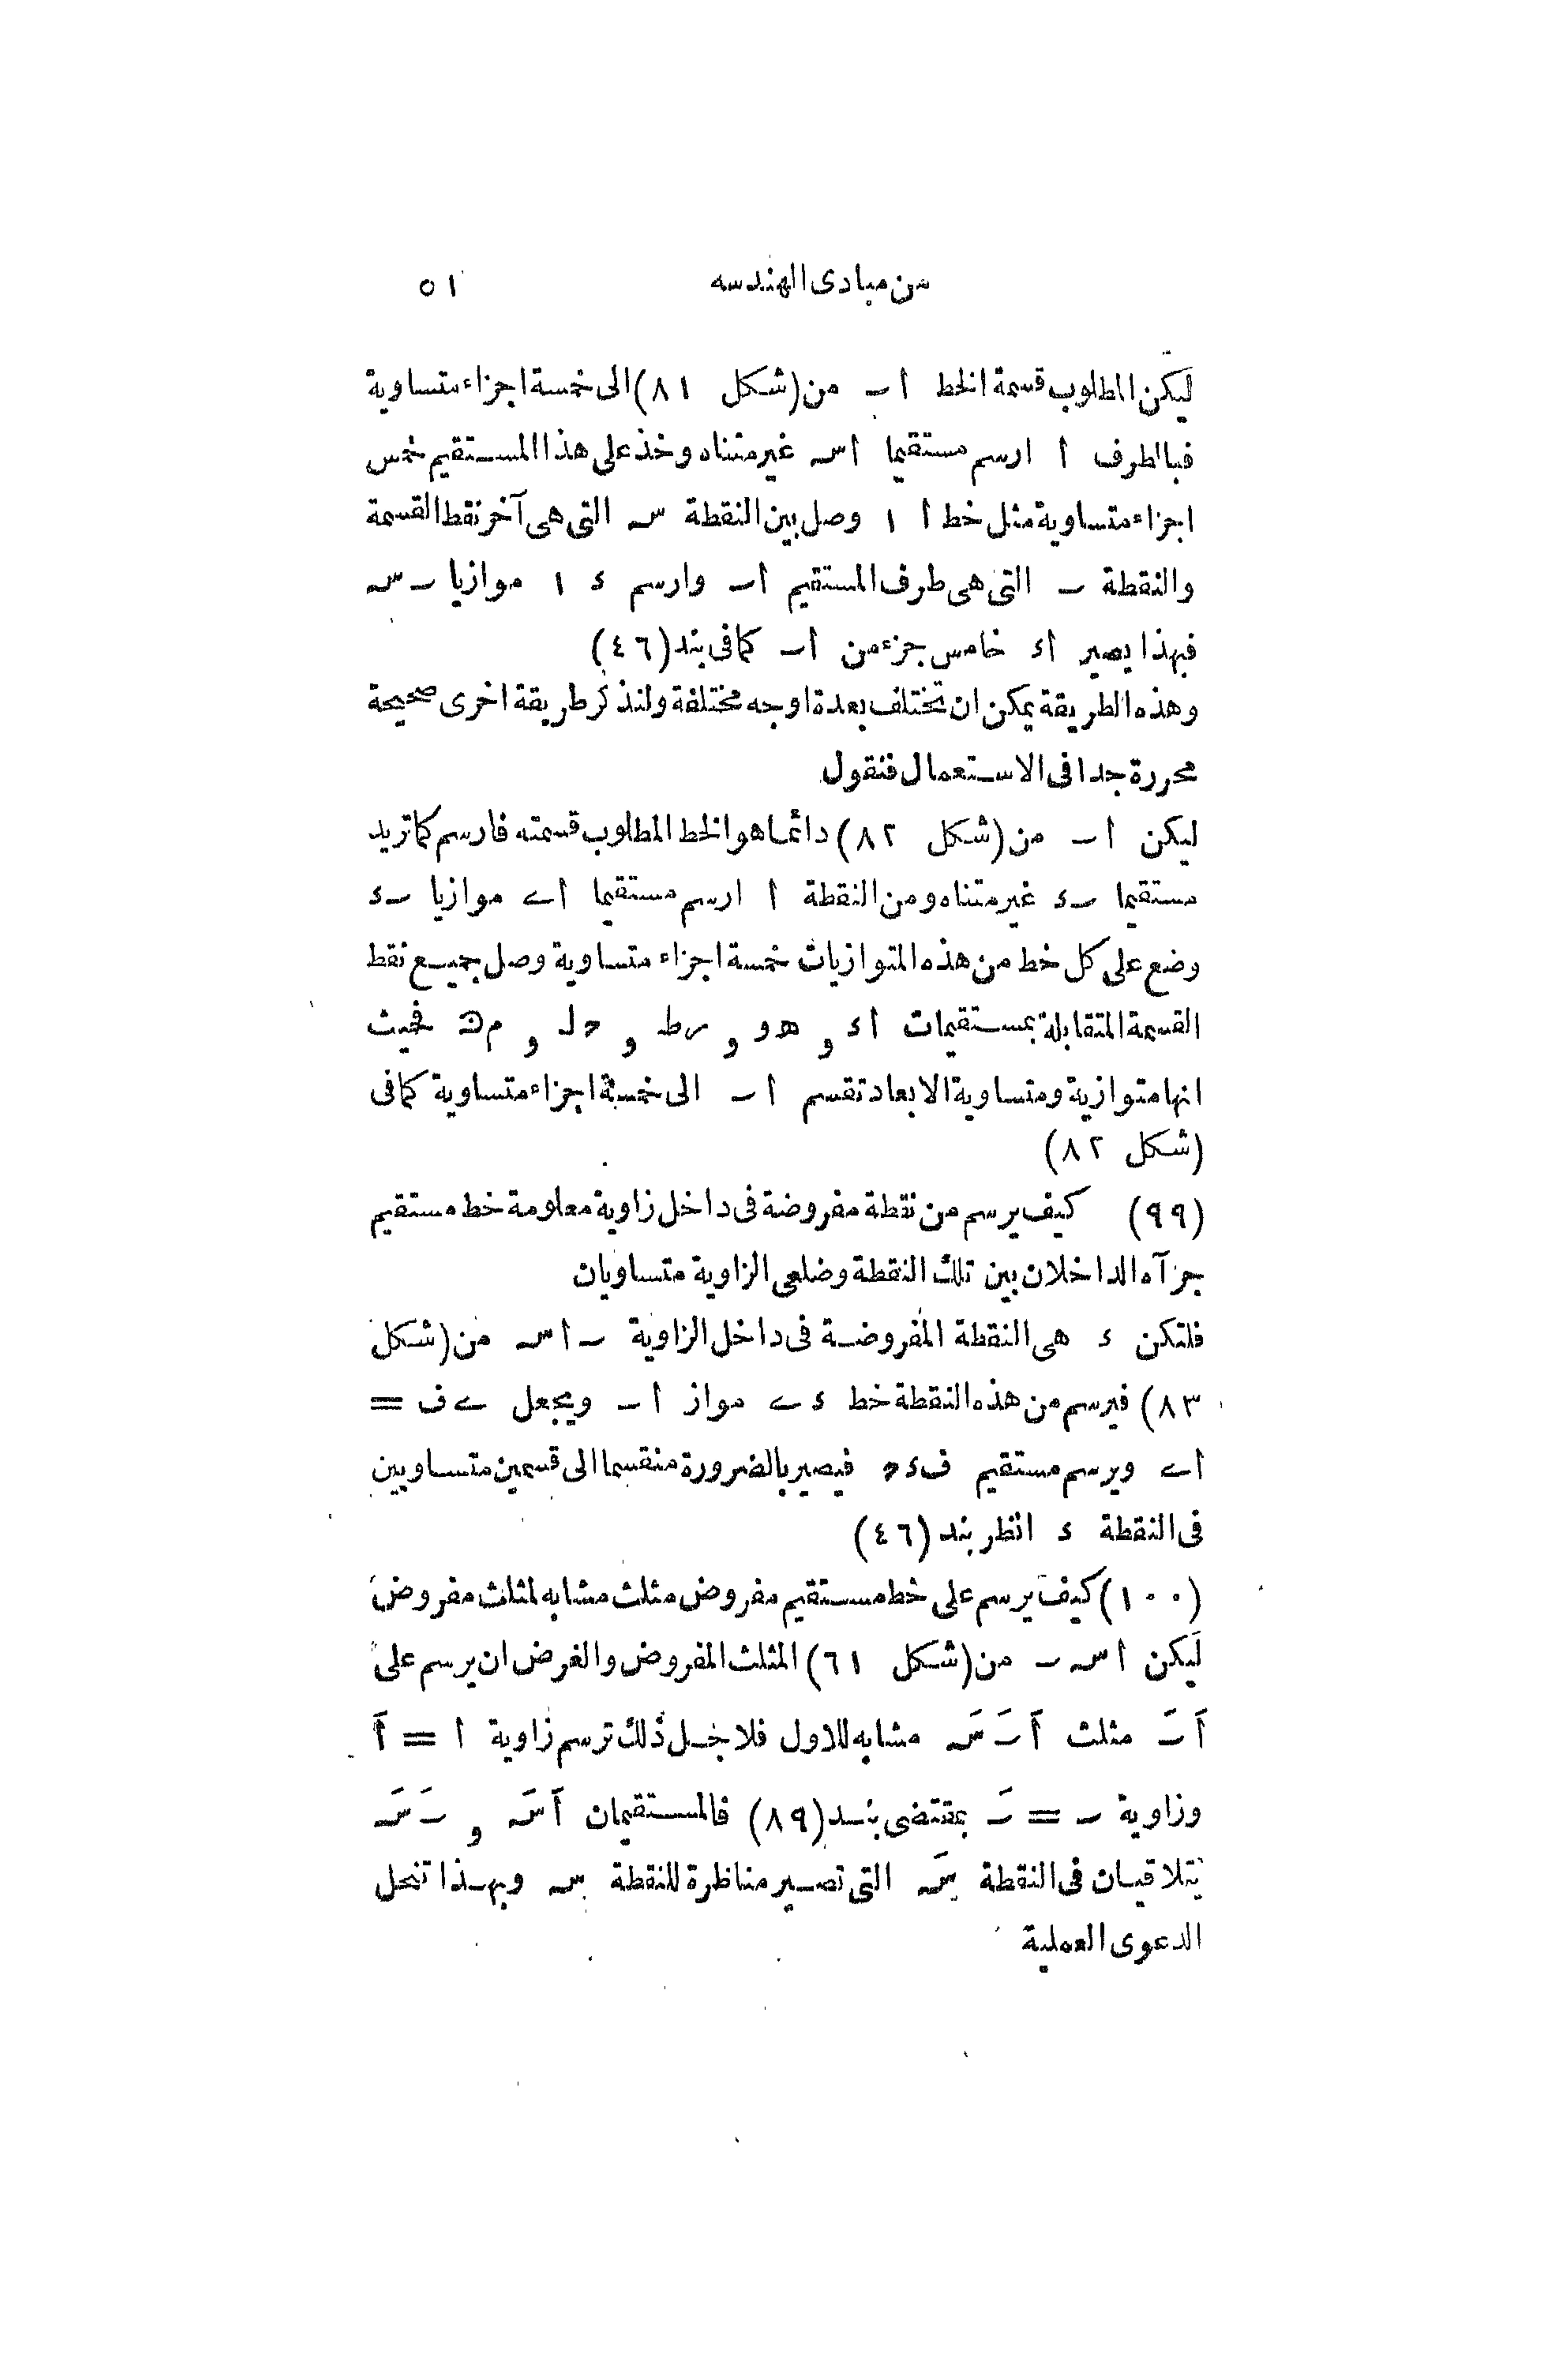 من مبادى الهندسه ٥١
ليكن المطلوب قسمة الخط ا ٮ من (شكل ٨١) الى خمسة اجزاء متساوية
فبالطرف ا ارسم مستقيما اسـ غير متناه وخذ على هذا المستقيم خمس
اجزاء متساوية مثل خط ا ١ وصل بين النقطة سـ التى هى آخر نقط القسمة
والنقطة ٮ التى هى طرف المستقيم اٮ وارسم ء ١ موازيا ٮ سـ
فبهذا يصير اء خامس جزء من اٮ كما فى بند (٤٦)
وهذه الطريقة يمكن ان تختلف بعدة اوجه مختلفة ولنذكر طريقة اخرى صحيحة
محررة جدا فى الاستعمال فنقول
ليكن ا ٮ من (شكل ٨٢) دائما هو الخط المطلوب قسمته فارسم كما تريد
مستقيما ٮء غير متناه ومن النقطة ا ارسم مستقيما اے موازيا ٮء
وضع على كل خط من هذه المتوازيات خمسة اجزاء متساوية وصل جميع نقط
القسمة المتقابلة بمستقيمات اء و هو و رط و حل و م ك فحيث
انها متوازية ومتساوية الابعاد تقسم ا ٮ الى خمسة اجزاء متساوية كما فى
(شكل ٨٢)
(٩٩) كيف يرسم من نقطة مفروضة فى داخل زاوية معلومة خط مستقيم
جزآه الداخلان بين تلك النقطة وضلعى الزاوية متساويان
فلتكن ء هى النقطة المفروضة فى داخل الزاوية ٮ اسـ من (شكل
٨٣) فيرسم من هذه النقطة خط ءے مواز ا ٮ ويجعل ےف =
اے ويرسم مستقيم فءح فيصير بالضرورة منقسما الى قسمين متساويين
فى النقطة ء انظر بند (٤٦)
(١٠٠) كيف يرسم على خط مستقيم مفروض مثلث مشابه لمثلث مفروض
ليكن اسـ ٮ من (شكل ٦١) المثلث المفروض والغرض ان يرسم على
اَ ٮَ مثلث اَ ٮَ سَـ مشابه للاول فلاجل ذلك ترسم زاوية ا = اَ
وزاوية ٮ = ٮَ بمقتضى بند (٨٩) فالمستقيمان اَسَـ و ٮَسَـ
يتلاقيان فى النقطة سَـ التى تصير مناظرة للنقطة سـ وبهذا تنحل
الدعوى العملية